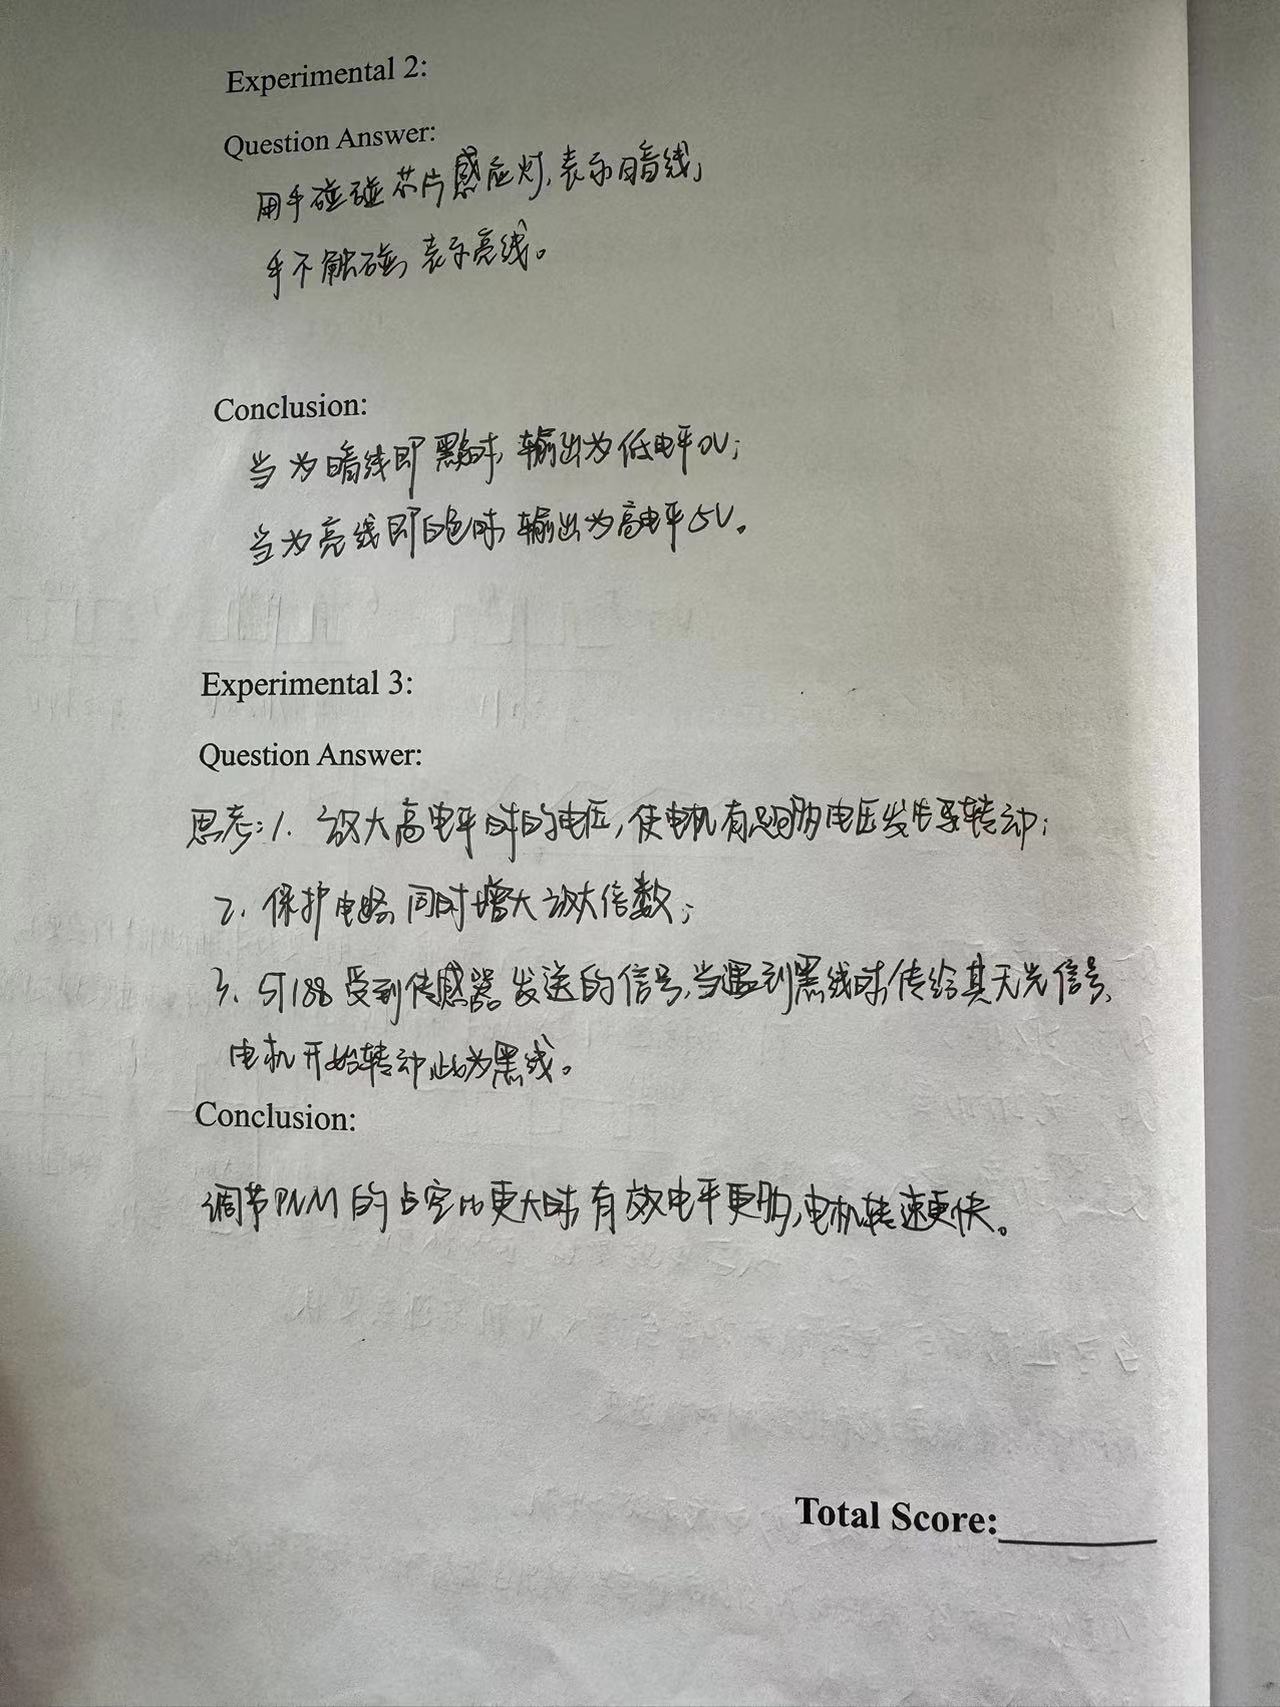 Experimental 2:
Question Answer:
用手碰碰芯片感应灯,表示暗线;
手不触碰,表示亮线。
Conclusion:
当为暗线即黑色时,输出为低电平0V;
当为亮线即白色时,输出为高电平5V。
Experimental 3:
Question Answer:
思考:1. 放大高电平时的电压,使电机有足够电压发生转动;
2. 保护电路,同时增大放大倍数;
3. ST188受到传感器发送的信号,当遇到黑线时,传给其无光信号,
电机开始转动,此为黑线。
Conclusion:
调节PWM的占空比更大时,有效电平更多,电机转速更快。
Total Score: